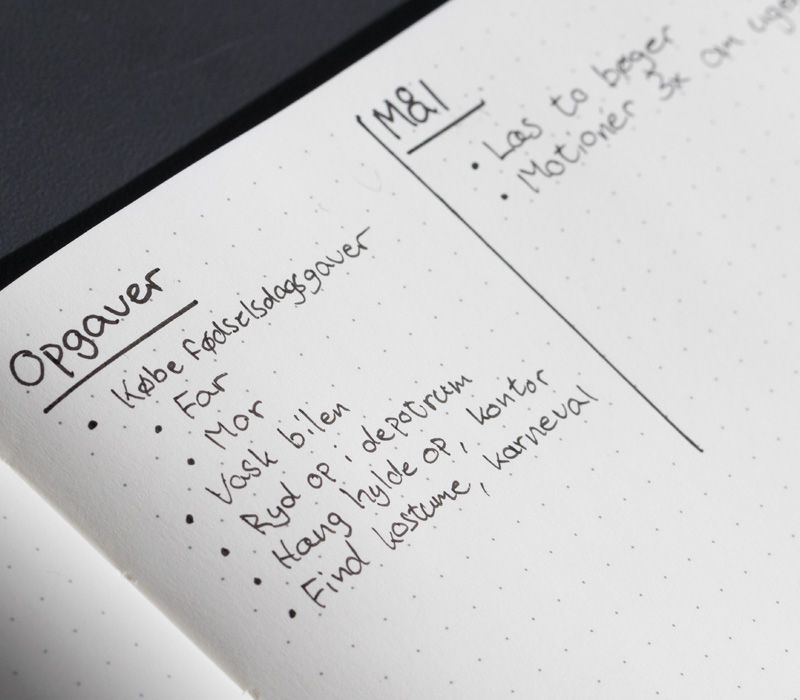 Opgaver
• Købe fødselsdagsgaver
• Far
• Mor
• Vask bilen
• Ryd op i depotrum
• Hæng hylde op, kontor
• Find kostume, karneval
Mål
• Læs to bøger
• Motioner 3x om ugen